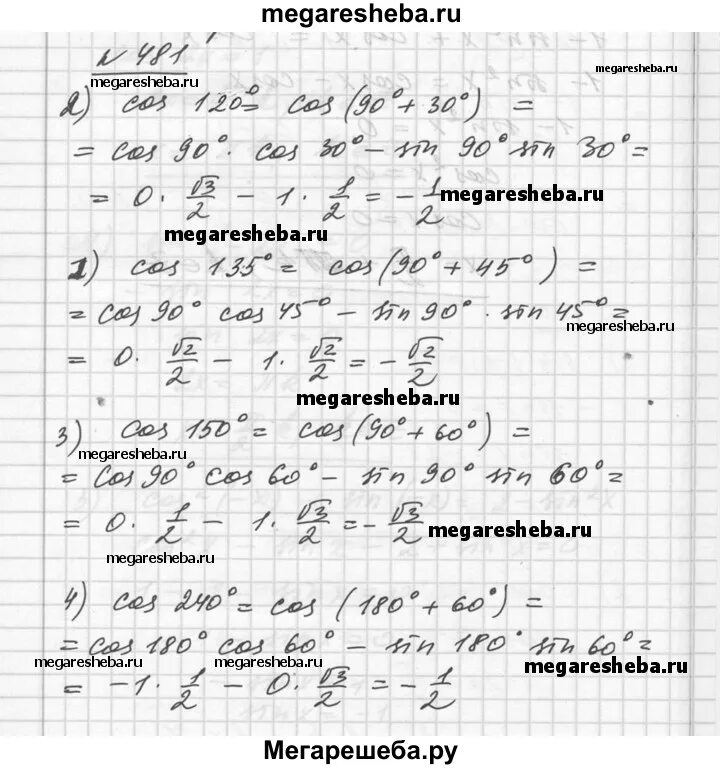 megaresheba.ru
№ 481
megaresheba.ru
megaresheba.ru
2) cos 120° = cos(90° + 30°) =
= cos 90° · cos 30° − sin 90° sin 30° =
= 0 · √3/2 − 1 · 1/2 = − 1/2
megaresheba.ru
megaresheba.ru
1) cos 135° = cos(90° + 45°) =
= cos 90° cos 45° − sin 90° · sin 45° =
megaresheba.ru
= 0 · √2/2 − 1 · √2/2 = − √2/2
megaresheba.ru
3) cos 150° = cos(90° + 60°) =
megaresheba.ru
= cos 90° cos 60° − sin 90° sin 60° =
= 0 · 1/2 − 1 · √3/2 = − √3/2
megaresheba.ru
megaresheba.ru
4) cos 240° = cos (180° + 60°) =
= cos 180° cos 60° − sin 180° sin 60° =
megaresheba.ru
megaresheba.ru
megaresheba.ru
= −1 · 1/2 − 0 · √3/2 = − 1/2
Мегарешеба.ру